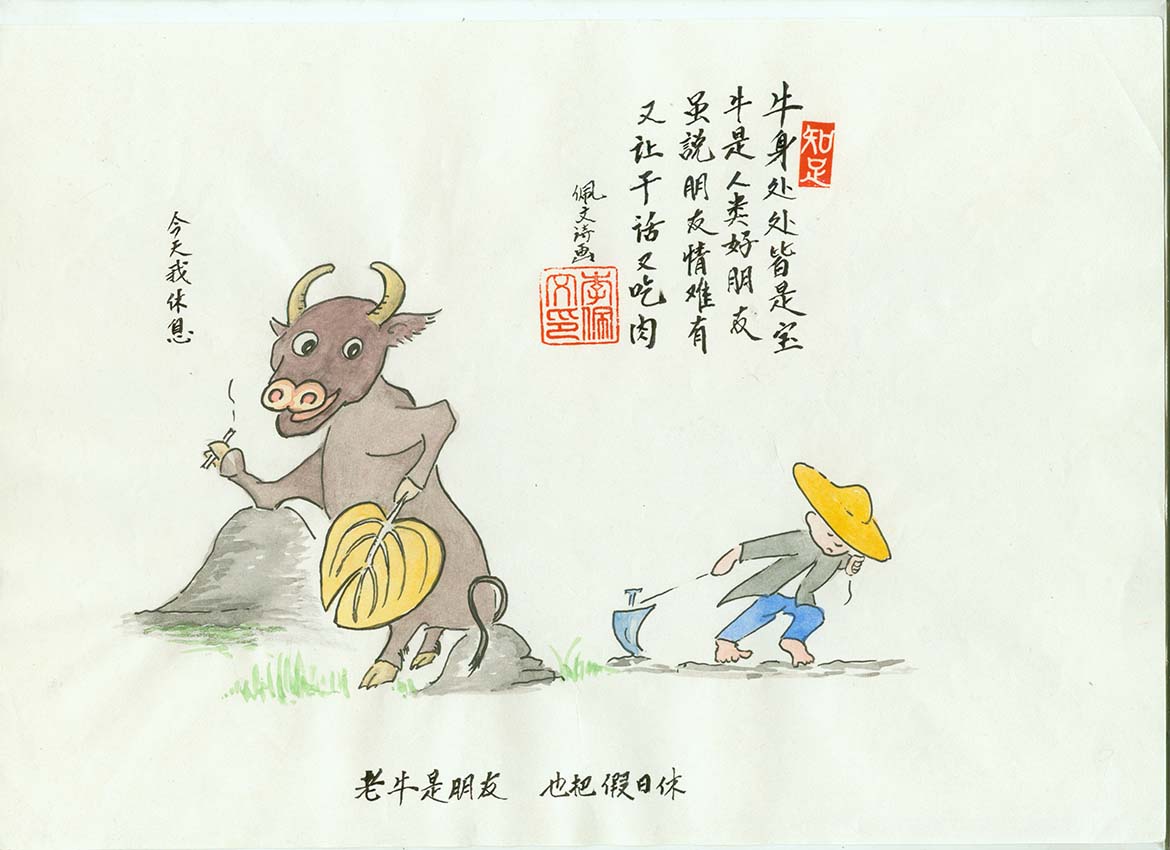 知足
牛身处处皆是宝
牛是人类好朋友
虽説朋友情难有
又让干话又吃肉
佩文诗画
李佩文印
今天我休息
老牛是朋友 也把假日休